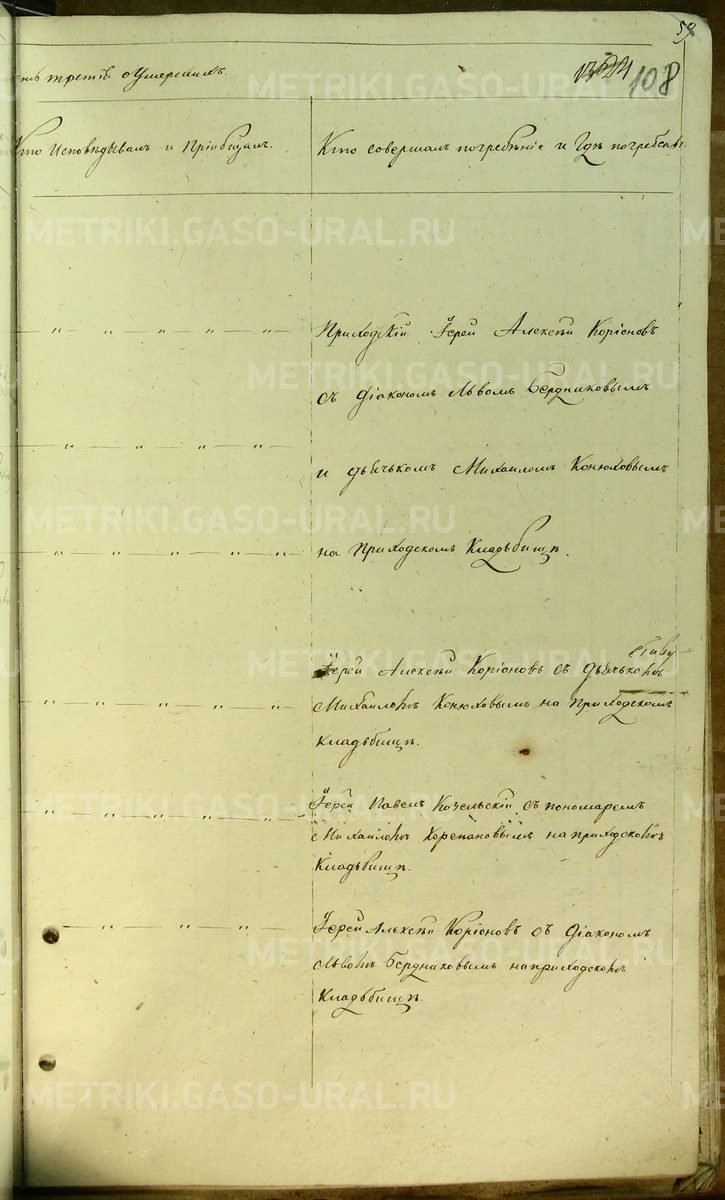 59
третій о умершихъ.
108
Кто исповѣдывалъ и пріобщалъ.
Кто совершалъ погребѣніе и гдѣ погребены.
— „ — „ — „ — „ — „ —
Приходскій Іерей Алексѣй Коріоновъ
съ Діакономъ Львомъ Бердниковымъ
— „ — „ — „ — „ —
и дьячькомъ Михаиломъ Конюховымъ
— „ — „ — „ — „ — „ —
на Приходскомъ Кладьбищѣ.
Іерей Алексѣй Коріоновъ съ дьячькомъ
— „ — „ — „ — „ — „ —
Михаиломъ Конюховымъ на Приходскомъ
Кладьбищѣ.
Іерей Павелъ Козельскій съ пономаремъ
— „ — „ — „ — „ — „ —
Михаиломъ Корепановымъ на приходскомъ
Кладьбищѣ.
Іерей Алексѣй Коріоновъ съ Діакономъ
— „ — „ — „ — „ —
Львомъ Бердниковымъ на приходскомъ
Кладьбищѣ.
METRIKI.GASO-URAL.RU